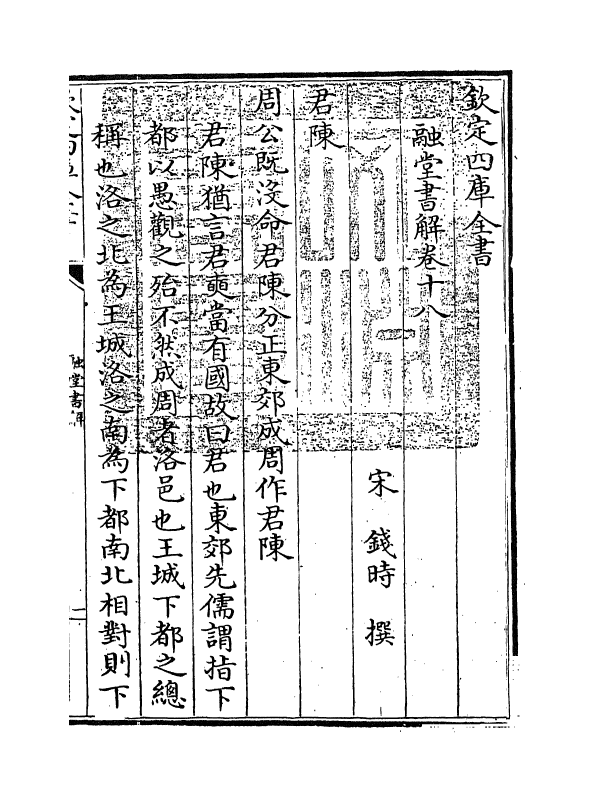 欽定四庫全書
融堂書解卷十八
宋 錢時 撰
君陳
周公既沒命君陳分正東郊成周作君陳
君陳猶言君奭當有國故曰君也東郊先儒謂指下
都以愚觀之殆不然成周者洛邑也王城下都之總
稱也洛之北為王城洛之南為下都南北相對則下
融堂書解